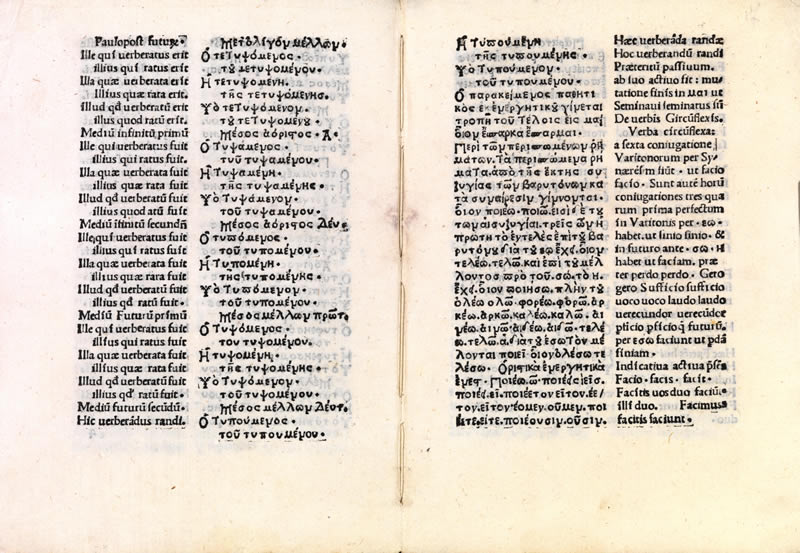 Paulopost futurẽ.
Ille qui uerberatus erit
illius qui ratus erit
Illa quæ uerberata erit
Illius quæ rata erit.
Illud qd̃ uerberatũ erit
illius quod ratũ erit.
Mediũ infinitũ primũ
Ille qui uerberatus fuit
illius qui ratus fuit.
Illa quæ uerberata fuit
illius quæ rata fuit
Illud qd̃ uerberatũ fuit
illius quod atũ fuit
Mediũ ĩfinitũ secundũ
Ille qui uerberatus fuit
illius qui ratus fuit.
Illa quæ uerberata fuit
illius quæ rara fuit
Illud qd̃ uerberatũ fuit
illius qd̃ ratũ fuit.
Mediũ Futurũ primũ
Ille qui uerberatus fuit
illius qui ratus fuit
Illa quæ uerberata fuit
illius quæ rata fuit
Illud qd̃ uerberatũ fuit
illius qd̃ ratũ fuit.
Mediũ futurũ secũdũ.
Hic uerberãdus randi.
Μετ ὀλίγον μέλλων.
Ὁ τετυψόμενος
τοῦ τετυψομένου.
Ἡ τετυψομένη.
τῆς τετυψομένης.
Τὸ τετυψόμενον.
τοῦ τετυψομένου.
Μέσος ἀόριστος. Α.
Ὁ τυψάμενος.
τοῦ τυψαμένου.
Ἡ τυψαμένη.
τῆς τυψαμένης.
Τὸ τυψάμενον.
τοῦ τυψαμένου.
Μέσος ἀόριστος Δεύ.
Ὁ τυπόμενος.
τοῦ τυπομένου.
Ἡ τυπομένη.
τῆς τυπομένης.
Τὸ τυπόμενον.
τοῦ τυπομένου.
Μέσος μέλλων πρῶτ.
Ὁ τυψόμενος.
τοῦ τυψομένου.
Ἡ τυψομένη.
τῆς τυψομένης.
Τὸ τυψόμενον.
τοῦ τυψομένου.
Μέσος μέλλων Δεύτ.
Ὁ τυπούμενος.
τοῦ τυπουμένου.
Ἡ τυπουμένη
τῆς τυπουμένης.
Τὸ τυπούμενον.
τοῦ τυπουμένου.
Ὁ παρακείμενος παθητι
κὸς ἐξ ἐνεργητικοῦ γίνεται
τροπῇ τοῦ τέλοις εἰς μαι
οἷον ἔσπαρκα ἔσπαρμαι.
Περὶ τῶν περισπωμένων ῥη
μάτων. Τὰ περισπώμενα ῥή
ματα. ἀπὸ τῆς ἕκτης συ
ζυγίας τῶν βαρυτόνων κα
τὰ συναίρεσιν γίγνονται.
οἷον ποιέω. ποιῶ. εἰσὶ δὲ τού
των αἱ συζυγίαι. τρεῖς ὧν ἡ
πρώτη τὸ ἐντελὲς ἐπὶ τοῦ βα
ρυτόνου διὰ τοῦ εω ἔχει. οἷον
τελέω. τελῶ. καὶ ἐπὶ τοῦ μέλ
λοντος πρὸ τοῦ. σω. τὸ η.
ἔχει. οἷον ποιήσω. πλὴν τοῦ
ὀλέω ὀλῶ. φορέω. φορῶ. ἀρ
κέω. ἀρκῶ. καλέω. καλῶ. αἰ
νέω. αἰνῶ.
τελῶ.
λονται ποιεῖ οἷον ὀλέσω τε
λέσω. Ὁριστικὰ ἐνεργητικὰ
ἐνεστ. Ποιέω. ῶ. ποιέεις εῖς.
ποιέει. εῖ. ποιέετον εῖτον. έε
τον. εῖτον. έομεν. οῦμεν. ποι
έετε. εῖτε. ποιέουσιν. οῦσιν.
Hæc uerberãda randæ
Hoc uerberandũ randi
Præteritũ passiuum.
ab iuo actiuo fit : mu
tatione finis in μαι ut
Seminaui seminatus sũ
De uerbis Circũflexis.
Verba circũflexa:
a sexta coniugatione
Varitonorum per Sy
næresim fiũt. ut facio
facio. Sunt autẽ horũ
coniugationes tres qua
rum prima perfectum
in Varitonis per. εω.
habet. ut sinio sinio. &
in futuro ante. σω. η
habet ut faciam. præ
ter perdo perdo. Gero
gero Sufficio sufficio
uoco uoco laudo laudo
uerecundor uerecũdor
pficio pficio q̃ futurũ.
per εσω faciunt ut pdã
finiam.
Indicatiua actiua p̃sẽs
Facio. facis. facit.
Facitis uos duo faciũt
illi duo. Facimus
facitis faciunt.